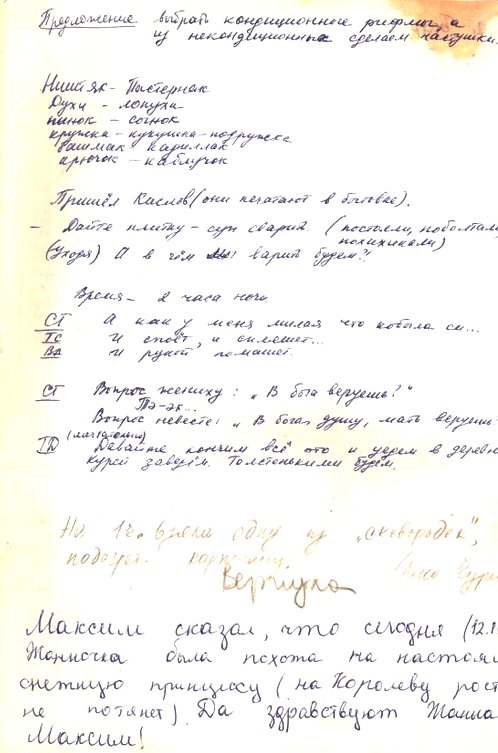 Предложение выбрать кондиционные рифмы, а
из некондиционных сделаем частушки.
Ништяк - Пастернак
Духи - лопухи
пинок - сапог
кружка - кукушка - подружка
башмак кадиллак
крючок - каблучок
Пришёл Каслов (они печатают в бытовке).
- Дайте плитку - суп сварить. (постояли, поболтали
похихикали)
(Уходя) А в чём мы варить будем?!
Время - 2 часа ночи
СТ А как у меня милая что кобыла си...
ТС И споёт, и спляшет...
ВД И рукой помашет.
СТ Вопрос жениху: "В бога веруешь?"
Тэ-эк...
Вопрос невесте: "В бога, душу, мать веруешь
ТД (мечтательно) Давайте кончим всё это и уедем в деревн
курей заведём. Толстенькими будем.
На взяли одну из "сковородок",
подогрели картошку.
Вернула
Максим сказал, что сегодня (12.1
Жанночка была похожа на настоя
снежную принцессу (на Королеву рост
не потянет). Да здравствуют Жанна
Максим!